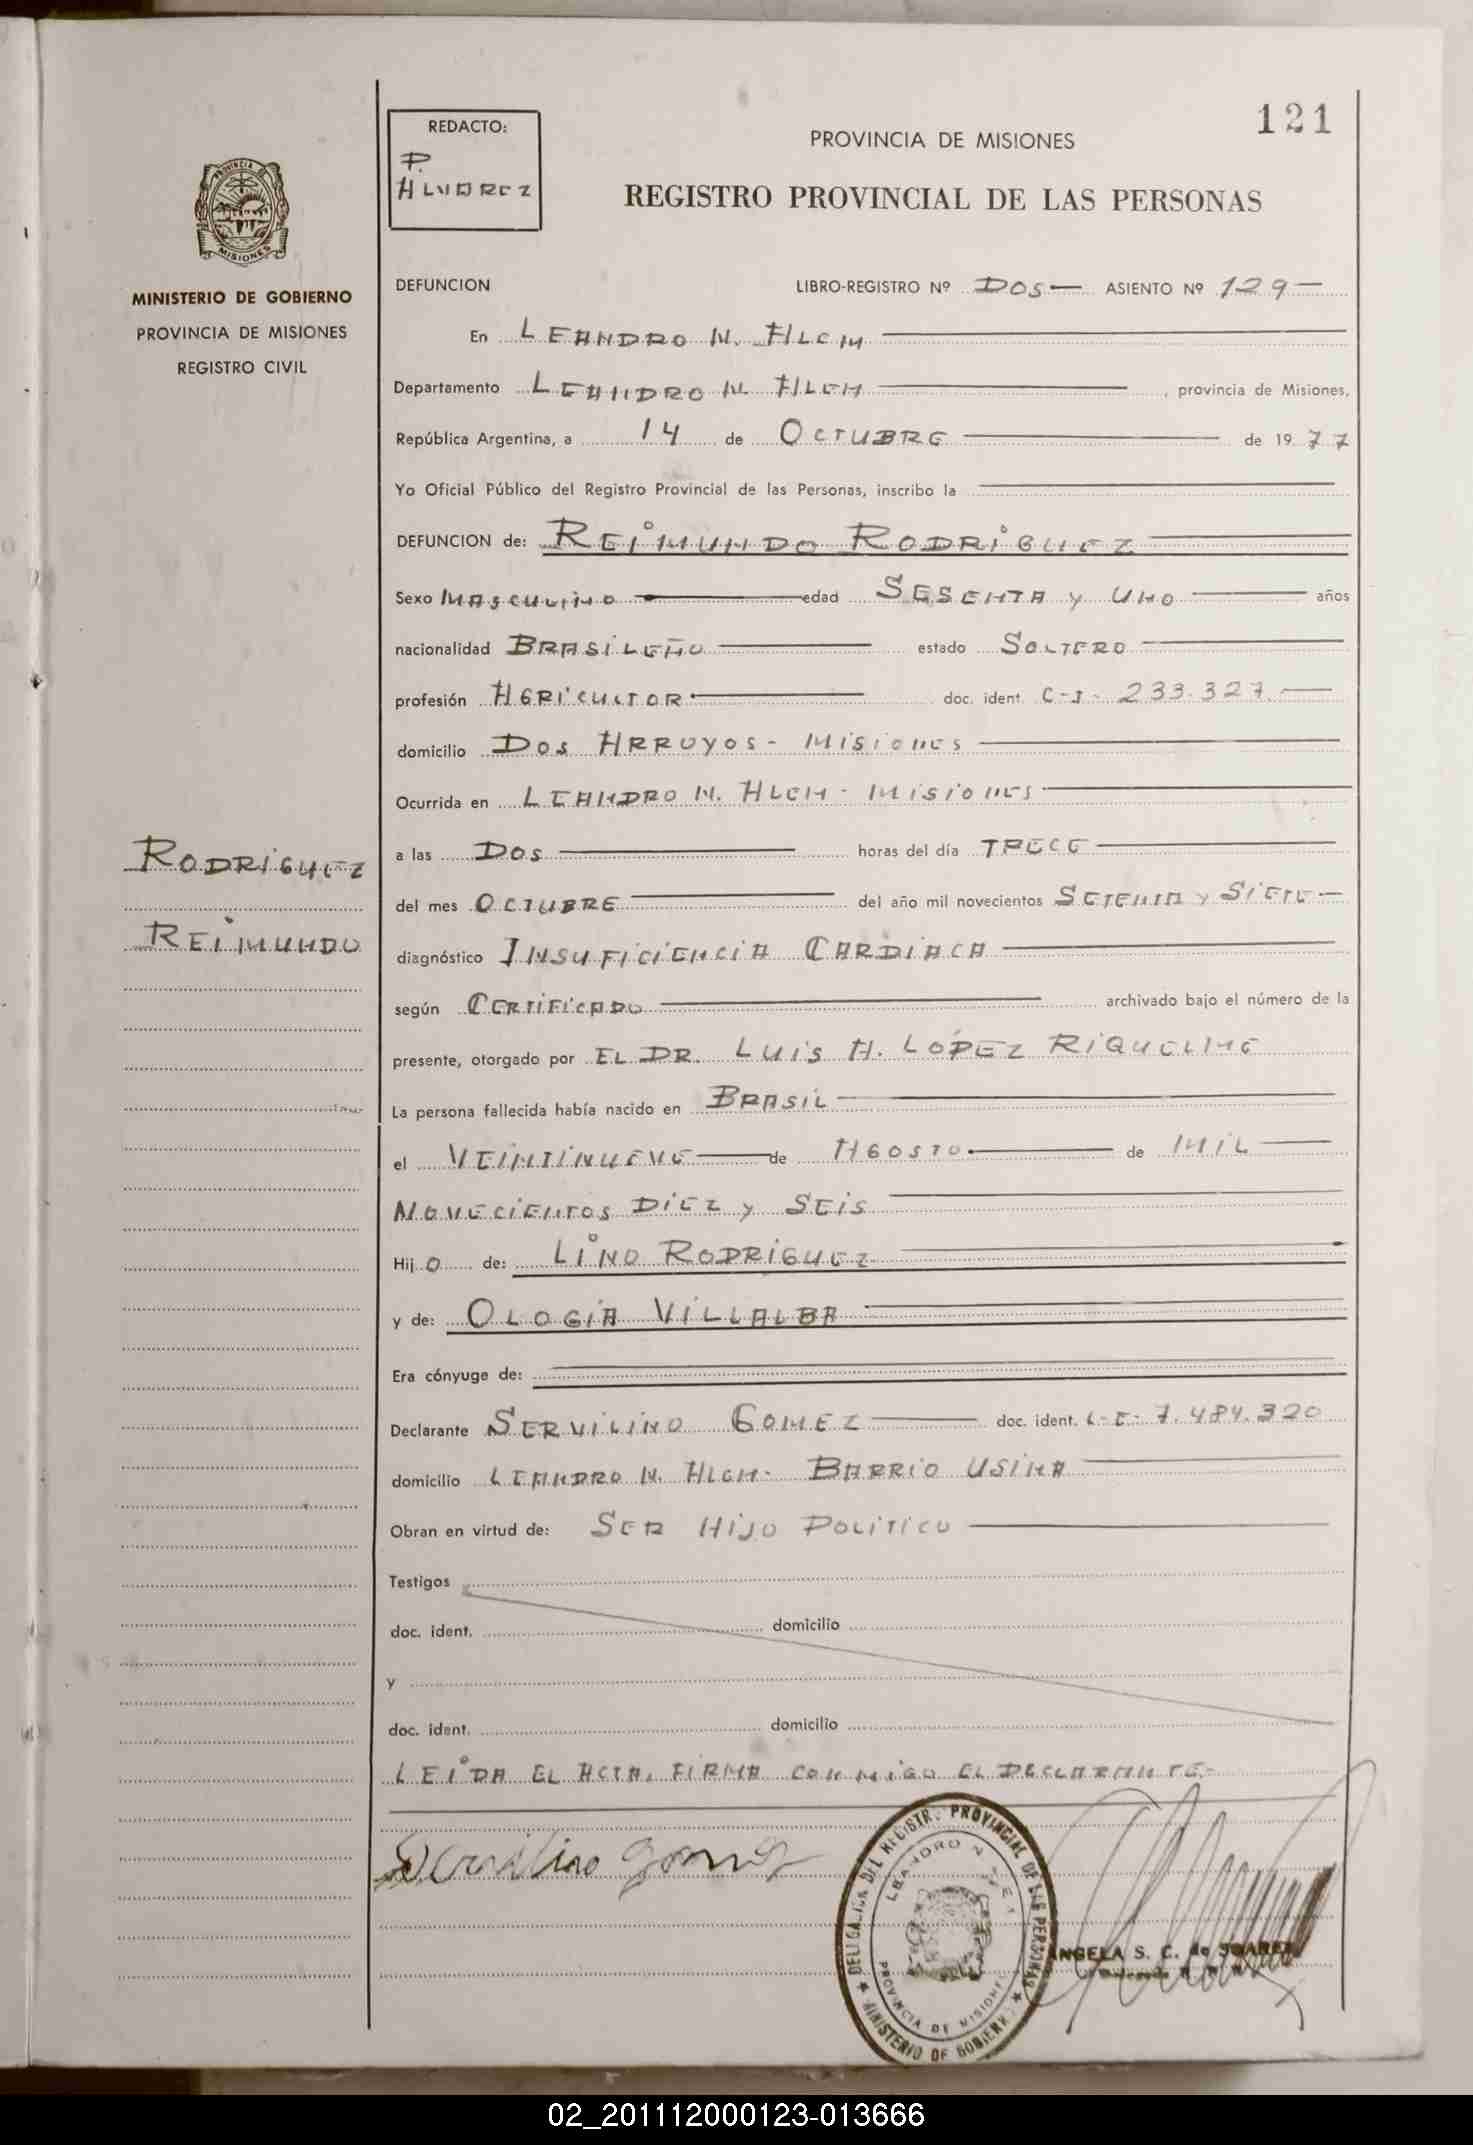 121
REDACTO:
P.
ALVAREZ
PROVINCIA DE MISIONES
REGISTRO PROVINCIAL DE LAS PERSONAS
PROVINCIA DE
MISIONES
MINISTERIO DE GOBIERNO
PROVINCIA DE MISIONES
REGISTRO CIVIL
DEFUNCION LIBRO-REGISTRO Nº DOS— ASIENTO Nº 129—
En LEANDRO N. ALEM
Departamento LEANDRO N. ALEM, provincia de Misiones,
República Argentina, a 14 de OCTUBRE de 1977
Yo Oficial Público del Registro Provincial de las Personas, inscribo la
DEFUNCION de: REIMUNDO RODRIGUEZ
Sexo MASCULINO edad SESENTA Y UNO años
nacionalidad BRASILEÑO estado SOLTERO
profesión AGRICULTOR doc. ident. C-I- 233.327.
domicilio DOS ARROYOS - MISIONES
Ocurrida en LEANDRO N. ALEM - MISIONES
RODRIGUEZ
REIMUNDO
a las DOS horas del día TRECE
del mes OCTUBRE del año mil novecientos SETENTA Y SIETE
diagnóstico INSUFICIENCIA CARDIACA
según CERTIFICADO archivado bajo el número de la
presente, otorgado por EL DR. LUIS A. LOPEZ RIQUELME
La persona fallecida había nacido en BRASIL
el VEINTINUEVE de AGOSTO de MIL
NOVECIENTOS DIEZ Y SEIS
Hij O de: LINO RODRIGUEZ
y de: OLOGIA VILLALBA
Era cónyuge de:
Declarante SERVILINO GOMEZ doc. ident. L-E- 7.484.320
domicilio LEANDRO N. ALEM- BARRIO USINA
Obran en virtud de: SER HIJO POLITICO
Testigos
doc. ident. domicilio
y
doc. ident. domicilio
LEIDA EL ACTA, FIRMA CONMIGO EL DECLARANTE-
Servilino Gomez
DELEGACION DEL REGISTR. PROVINCIAL DE LAS PERSONAS
LEANDRO N. ALEM
PROVINCIA DE MISIONES
MINISTERIO DE GOBIERNO
ANGELA S. C. de SUAREZ
02_201112000123-013666